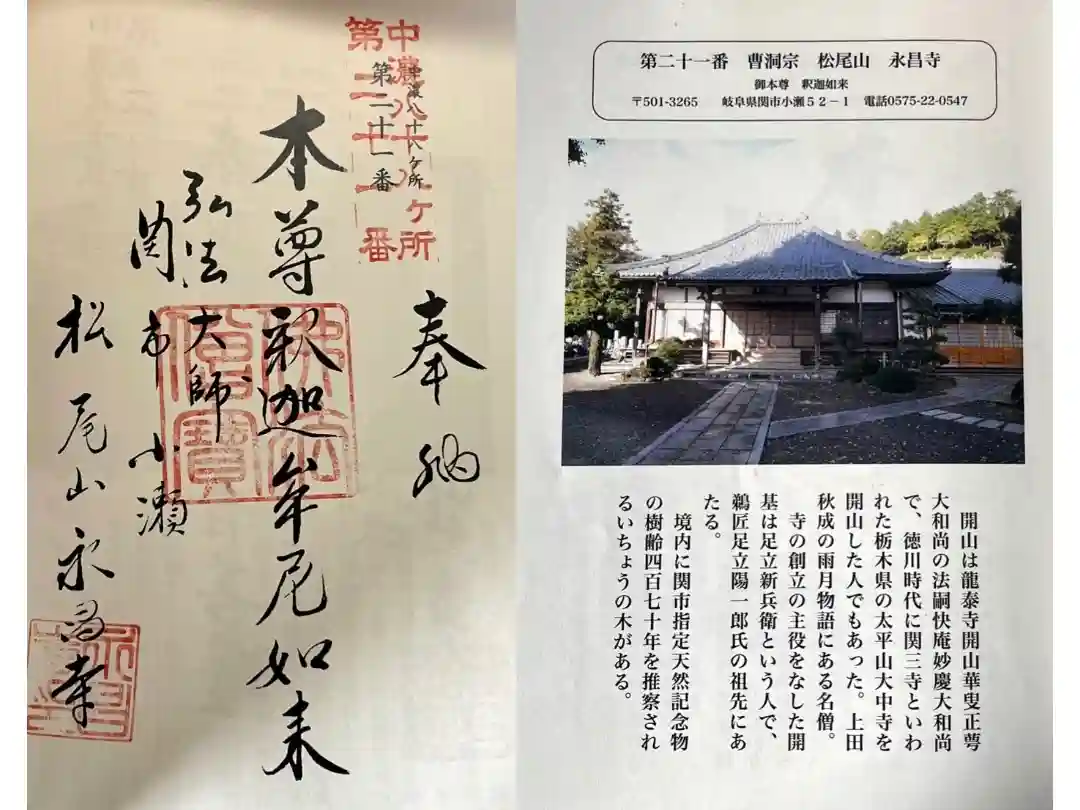 奉納
中濃八十八ケ所
第二十一番
中濃八十八ケ所
第二十一番
本尊釈迦牟尼如来
弘法大師
関市小瀬
松尾山永昌寺
第二十一番 曹洞宗 松尾山 永昌寺
御本尊 釈迦如来
〒501-3265 岐阜県関市小瀬52-1 電話0575-22-0547
開山は龍泰寺開山華叟正萼
大和尚の法嗣快庵妙慶大和尚
で、徳川時代に関三寺といわ
れた栃木県の太平山大中寺を
開山した人でもあった。上田
秋成の雨月物語にある名僧。
寺の創立の主役をなした開
基は足立新兵衛という人で、
鵜匠足立陽一郎氏の祖先にあ
たる。
境内に関市指定天然記念物
の樹齢四百七十年を推察され
るいちょうの木がある。